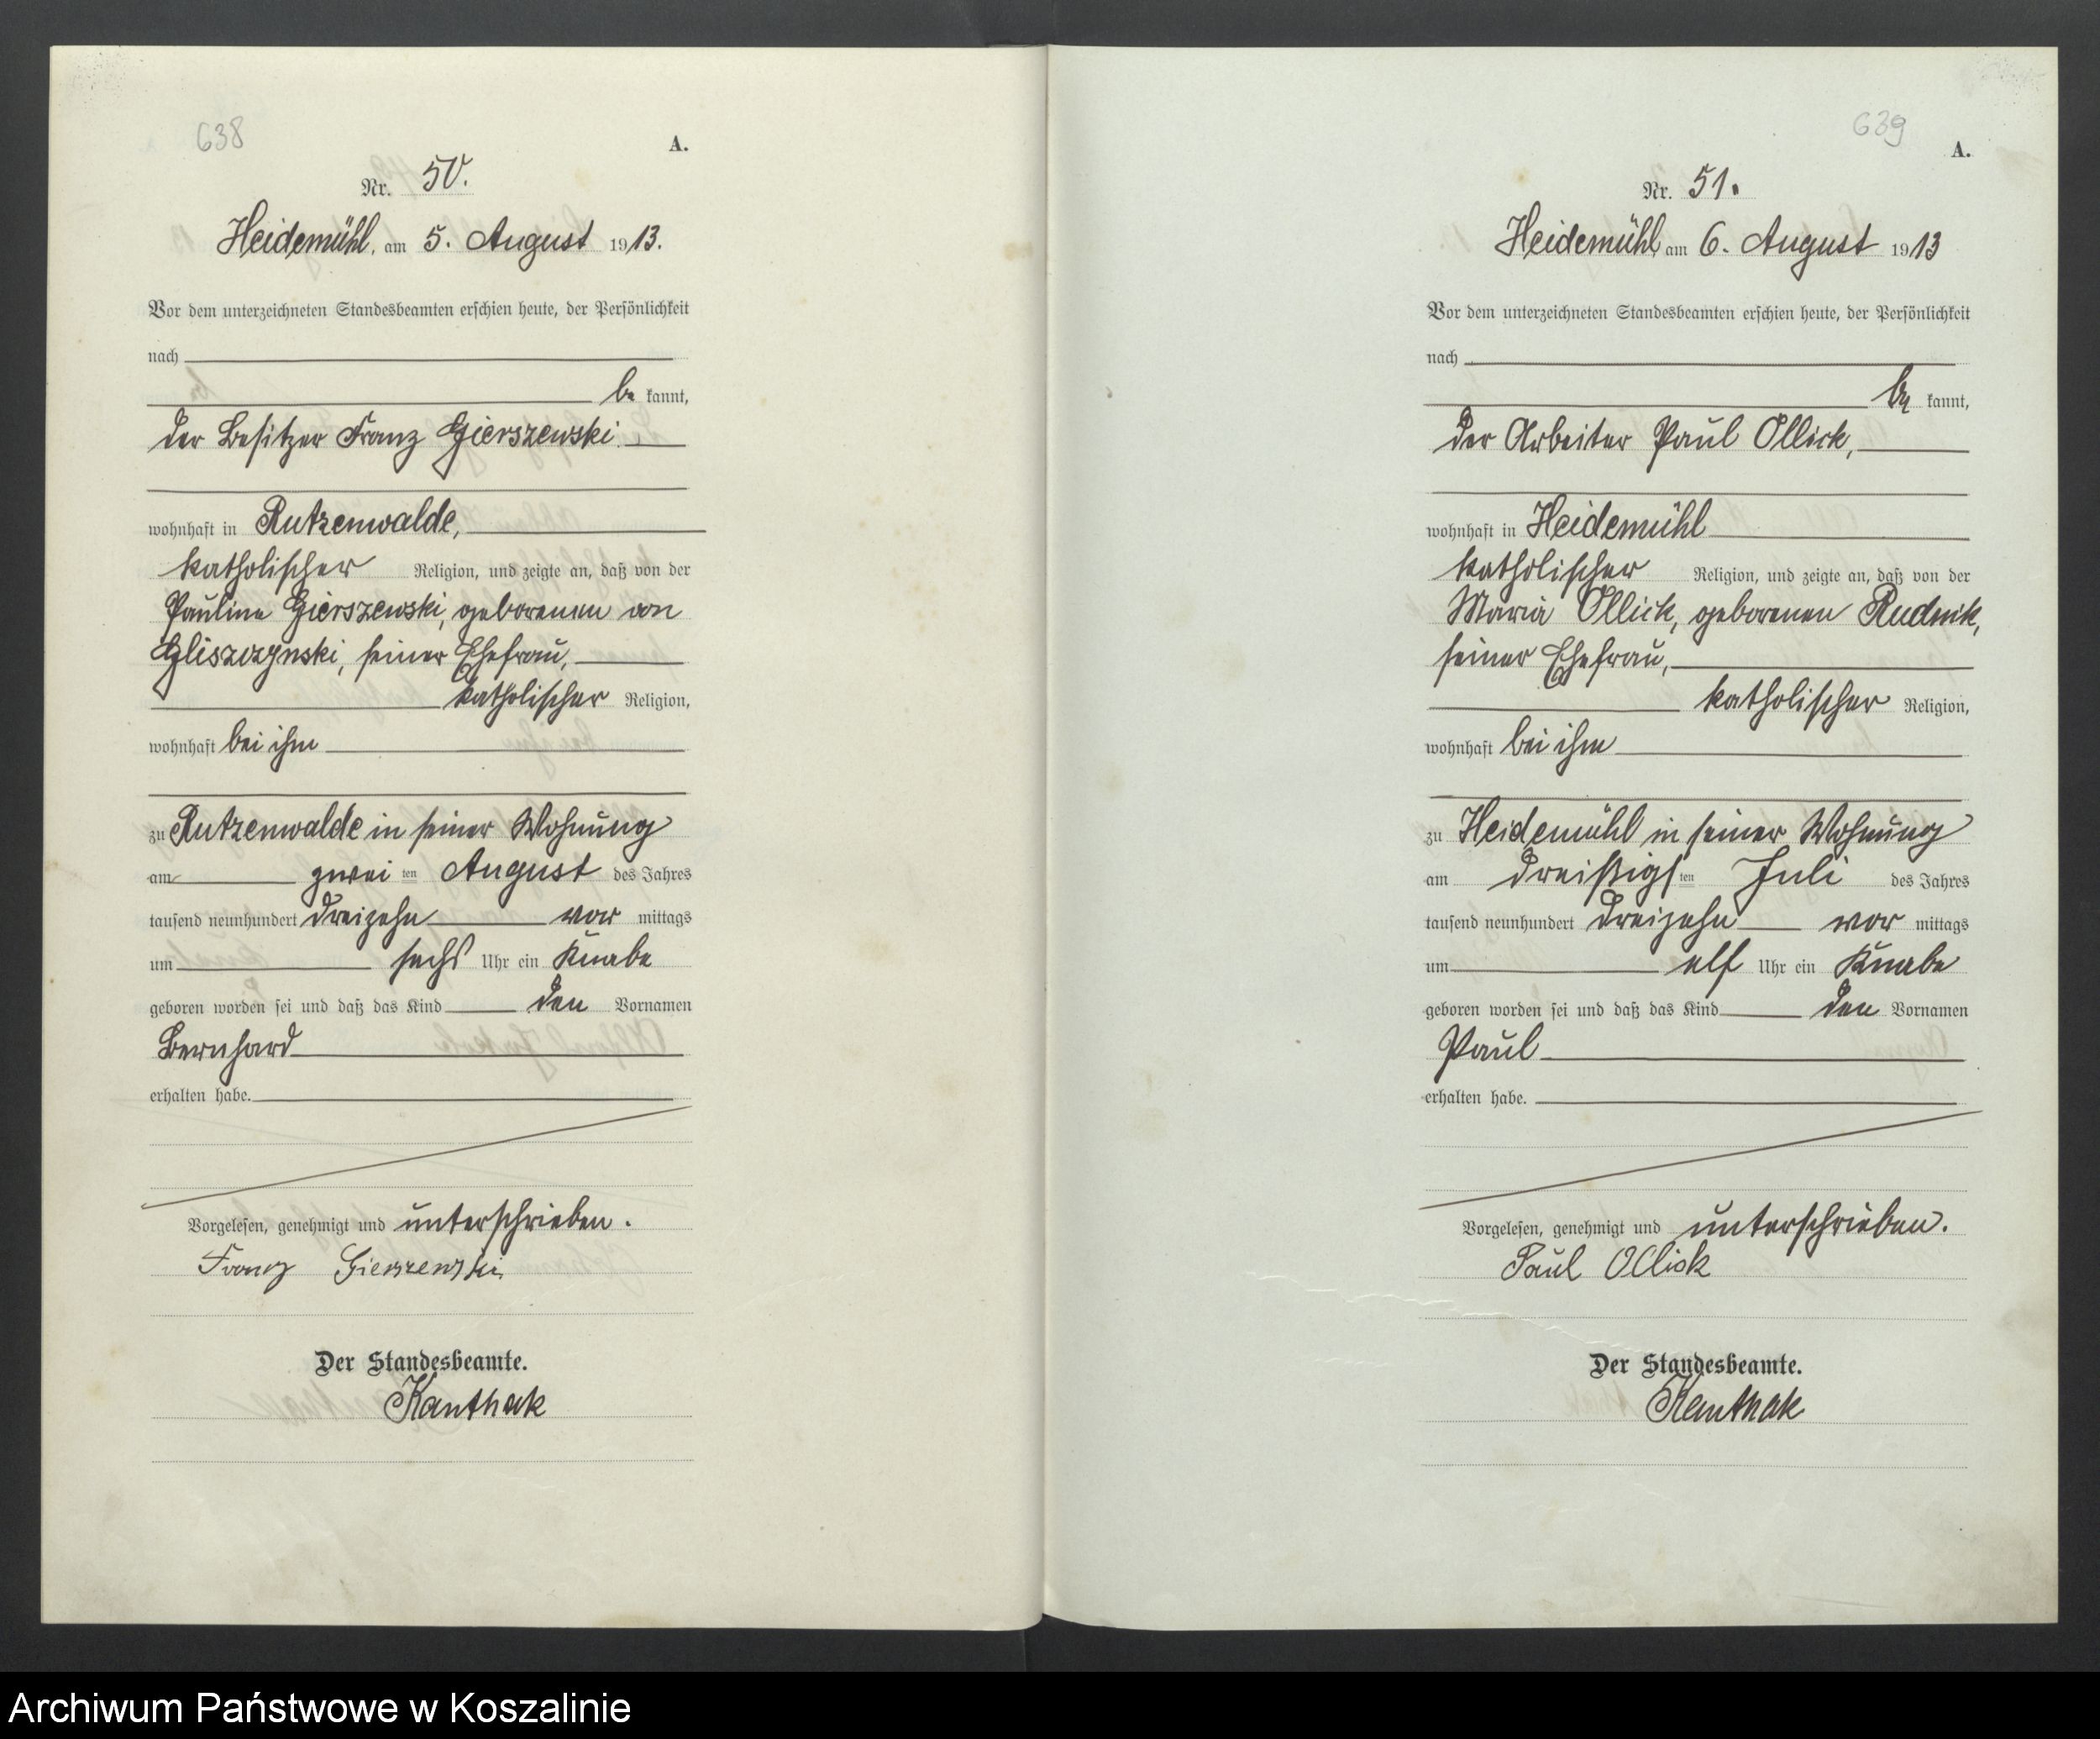 638
A.
Nr. 50.
Heidemühl, am 5. August 1913.
Vor dem unterzeichneten Standesbeamten erschien heute, der Persönlichkeit
nach
be kannt,
der Besitzer Franz Gierszewski
wohnhaft in Rutzenwalde,
katholischer Religion, und zeigte an, daß von der
Pauline Gierszewski, geborenen von
Gliszczynski, seiner Ehefrau,
katholischer Religion,
wohnhaft bei ihm
zu Rutzenwalde in seiner Wohnung
am zwei ten August des Jahres
tausend neunhundert dreizehn vor mittags
um sechs Uhr ein Knabe
geboren worden sei und daß das Kind den Vornamen
Bernhard
erhalten habe.
Vorgelesen, genehmigt und unterschrieben.
Franz Gierszewski
Der Standesbeamte.
Kanthak
639
A.
Nr. 51.
Heidemühl am 6. August 1913
Vor dem unterzeichneten Standesbeamten erschien heute, der Persönlichkeit
nach
be kannt,
der Arbeiter Paul Ollick,
wohnhaft in Heidemühl
katholischer Religion, und zeigte an, daß von der
Maria Ollick, geborenen Rudnik,
seiner Ehefrau,
katholischer Religion,
wohnhaft bei ihm
zu Heidemühl in seiner Wohnung
am dreißigs ten Juli des Jahres
tausend neunhundert dreizehn vor mittags
um elf Uhr ein Knabe
geboren worden sei und daß das Kind den Vornamen
Paul
erhalten habe.
Vorgelesen, genehmigt und unterschrieben.
Paul Ollick
Der Standesbeamte.
Kanthak
Archiwum Państwowe w Koszalinie